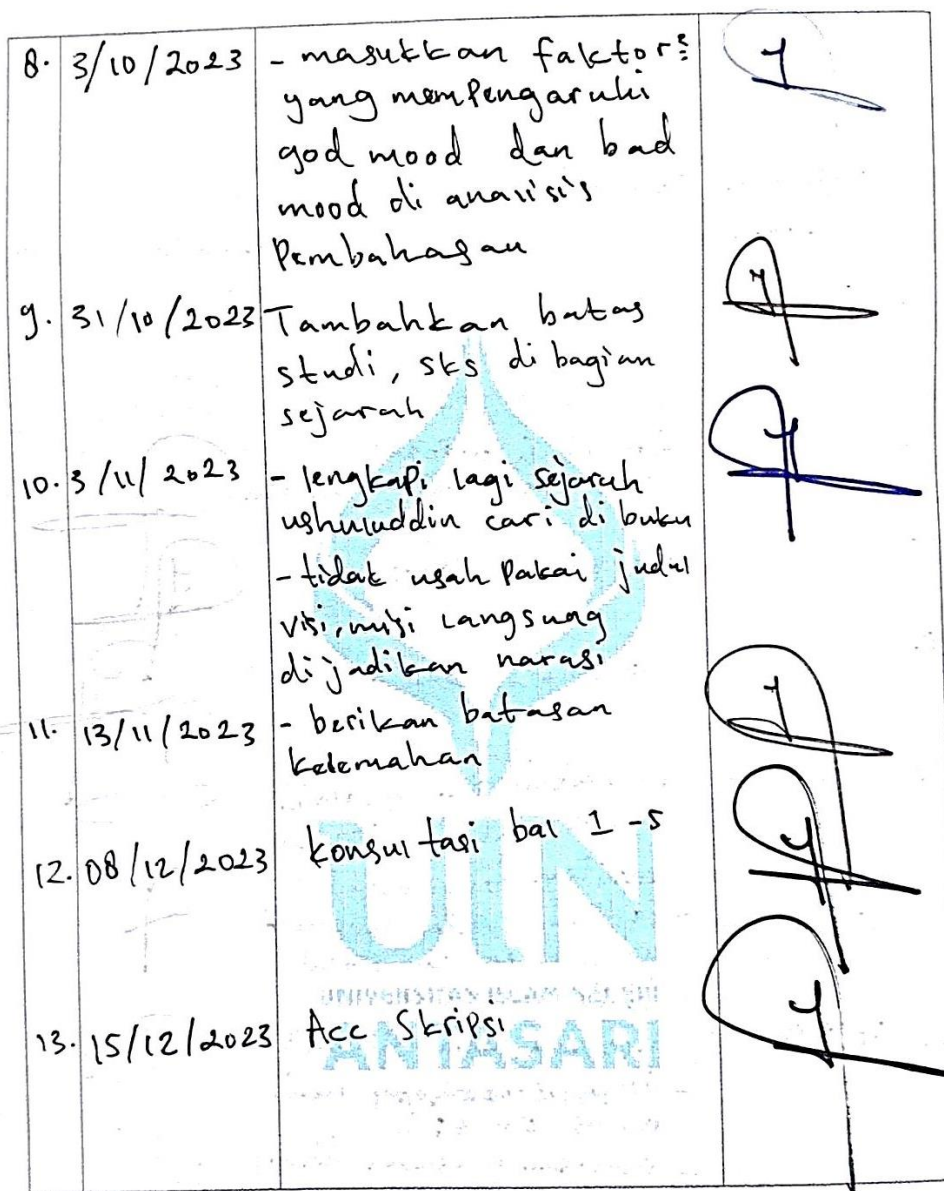 8. 3/10/2023 - masukkan faktor²
yang mempengaruhi
god mood dan bad
mood di analisis
Pembahasan
9. 31/10/2023 Tambahkan batas
studi, sks di bagian
sejarah
10. 3/11/2023 - lengkapi lagi sejarah
ushuluddin cari di buku
- tidak usah Pakai judul
visi, misi langsung
di jadikan narasi
11. 13/11/2023 - berikan batasan
kelemahan
12. 08/12/2023 konsultasi bab 1 - 5
UIN
13. 15/12/2023 Acc Skripsi
ANTASARI